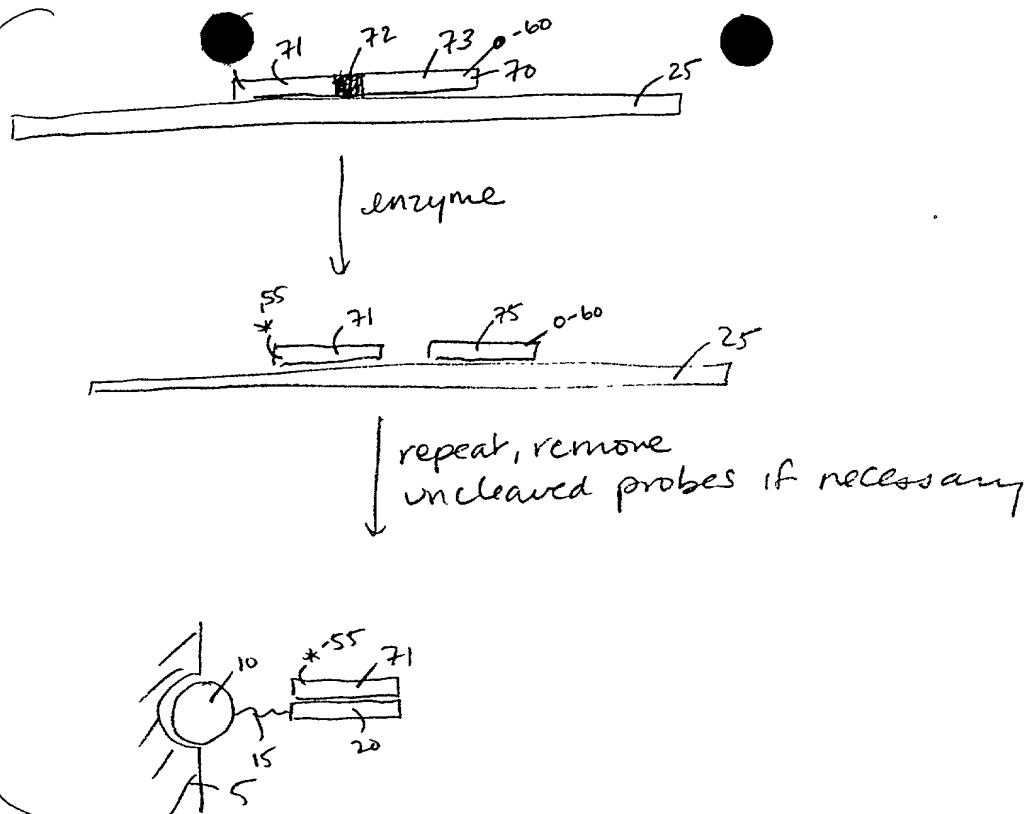 71 72 73 -60
70 25
enzyme
*55 71 75 0-60
25
repeat, remove
uncleaved probes if necessary
10 *-55 71
15 20
5